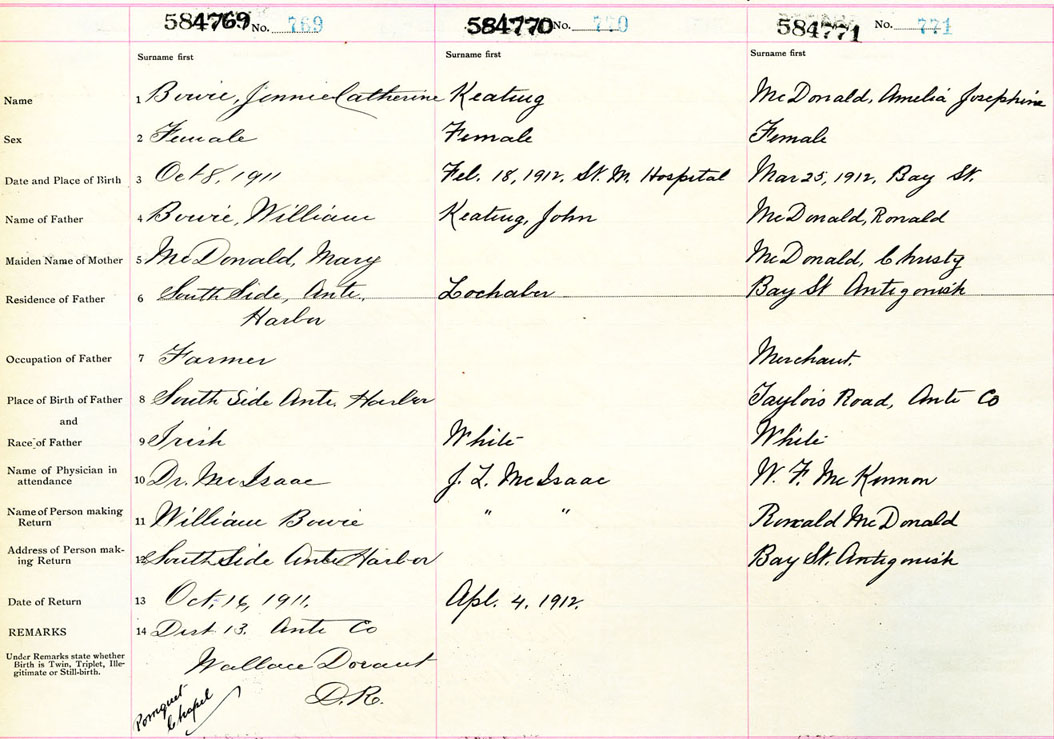 584769 No. 769 584770 No. 770 584771 No. 771
Surname first Surname first Surname first
Name 1 Bowie, Jennie Catherine Keating McDonald, Amelia Josephine
Sex 2 Female Female Female
Date and Place of Birth 3 Oct 8, 1911 Feb. 18, 1912, St. M. Hospital Mar 25, 1912, Bay St.
Name of Father 4 Bowie, William Keating, John McDonald, Ronald
Maiden Name of Mother 5 McDonald, Mary McDonald, Christy
Residence of Father 6 South Side, Ante. Lochaber Bay St Antigonish
Harbor
Occupation of Father 7 Farmer Merchant.
Place of Birth of Father 8 South Side Ante, Harbor Taylors Road, Ante Co
and
Race of Father 9 Irish White White
Name of Physician in
attendance 10 Dr. McIsaac J. L. McIsaac W. F. McKinnon
Name of Person making
Return 11 William Bowie " " Ronald McDonald
Address of Person mak-
ing Return 12 South Side Ante Harbor Bay St. Antigonish
Date of Return 13 Oct, 16, 1911. Apl. 4. 1912.
REMARKS 14 Dist 13. Ante Co
Under Remarks state whether
Birth is Twin, Triplet, Ille-
gitimate or Still-birth.
Wallace
D.R.
Pomquet
Chapel